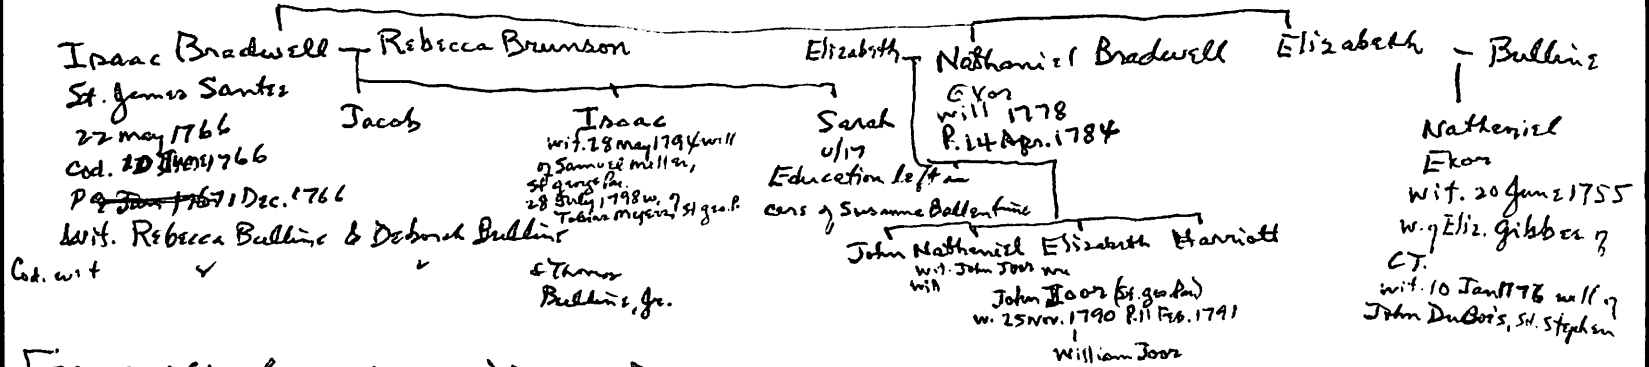 Isaac Bradwell - Rebecca Brunson
St. James Santee
22 May 1766
Cod. 20 June 1766
P 1 Dec. 1766
Wit. Rebecca Bulline & Deborah Bulline
Cod. wit ✓ ✓ & Thomas
Bulline, Jr.
Jacob
Isaac
wit. 28 May 1794 will
of Samuel Miller,
St George Par.
28 July 1798 w. of
Tobias Meyers, St geo. P.
Sarah
u/17
Education left in
care of Susanne Ballentine
Elizabeth - Nathaniel Bradwell
Exor
will 1778
P. 14 Apr. 1784
John Nathaniel Elizabeth Harriott
wit. John Joor
will
John Joor (St. geo. Par)
w. 25 Nov. 1790 P. 11 Feb. 1791
William Joor
Elizabeth - Bulline
Nathaniel
Exor
wit. 20 June 1755
w. of Eliz. Gibbes of
CT.
wit. 10 Jan 1776 will of
John DuBois, St. Stephen